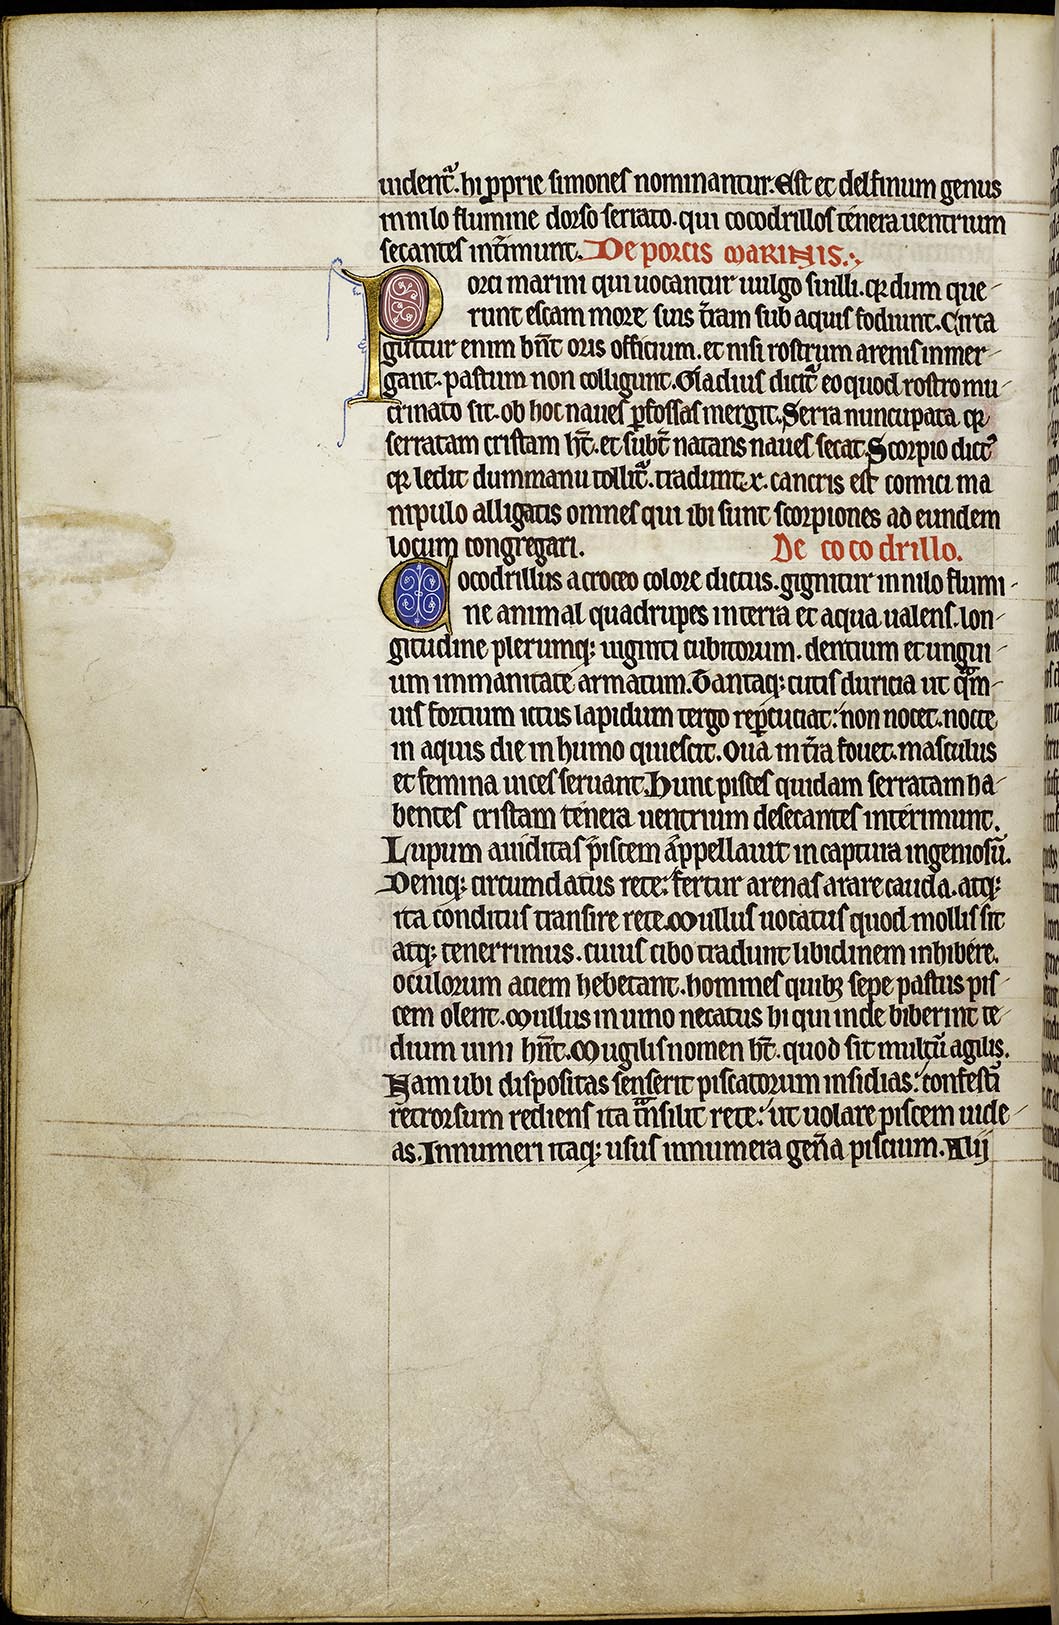 uident᷑. hi ꝓprie simones nominantur. Est et delfinum genus
in nilo flumine dorso serrato. qui cocodrillos tenera uentrium
secantes int̄imunt. De porcis marinis.
Porci marini qui uocantur uulgo suilli. qꝛ dum que-
runt escam more suis t̄ram sub aquis fodiunt. Circa
guttur enim hn̄t oris officium. et nisi rostrum arenis inmer-
gant. pastum non colligunt. Gladius dicit᷑ eo quod rostro mu-
crinato sit. ob hoc naues ꝑfossas mergit. Serra nuncupata qꝛ
serratam cristam ht̄. et subt᷑ natans naues secat. Scorpio dict᷑
qꝛ ledit dum manu tollit᷑. tradunt .x. cancris est comici ma
nipulo alligatis omnes qui ibi sunt scorpiones ad eundem
locum congregari. De cocodrillo.
Cocodrillus a croceo colore dictus. gignitur in nilo flumi-
ne animal quadrupes in terra et aqua ualens. lon-
gitudine plerumq; uiginti cubitorum. dentium et ungui-
um immanitate armatum. Tantaq; cutis duricia ut qᵃm-
uis fortium ictus lapidum tergo reꝑcuciat: non nocet. nocte
in aquis die in humo quiescit. Oua in t̄ra fouet. masculus
et femina uices seruant. Hunc pisces quidam serratam ha-
bentes cristam tenera uentrium desecantes interimunt.
Lupum auiditas piscem appellauit in captura ingeniosū.
Deniq; circumdatus rete: fertur arenas arare cauda. atq;
ita conditus transire rete. Mullus uocatus quod mollis sit
atq; tenerrimus. cuius cibo tradunt libidinem inhibere.
oculorum aciem hebetant. homines quibꝫ sepe pastus pis-
cem olent. Mullus in uino necatus hi qui inde biberint te-
dium uini hn̄t. Mugilis nomen ht̄. quod sit multū agilis.
Nam ubi dispositas senserit piscatorum insidias: confestī
retrorsum rediens ita tᵃnsilit rete: ut uolare piscem uide-
as. Innumeri itaq; usus innumera gen̄a piscium. Alij